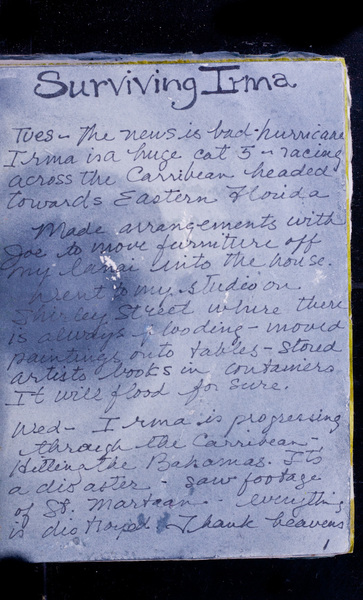 Surviving Irma
Tues - The news is bad - hurricane
Irma is a huge cat 5 - racing
across the Carribean headed
towards Eastern Florida
Made arrangements with
Joe to move furniture off
my lanai into the house.
Went to my studio on
Shirley Street where there
is always flooding - moved
paintings onto tables - stored
artists books in containers
It will flood for sure.
Wed - Irma is progressing
through the Carribean -
Hitting the Bahamas. It's
a disaster - saw footage
of St. Martaan - everything
is distroyed. Thank heavens
1